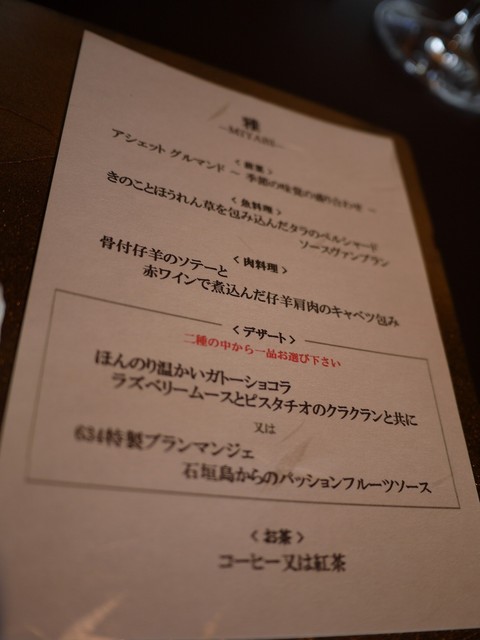 雅
~MIYABI~
〈 前菜 〉
アシェット グルマンド ~ 季節の味覚の盛り合わせ ~
〈 魚料理 〉
きのことほうれん草を包み込んだタラのベルシャード
ソースヴァンブラン
〈 肉料理 〉
骨付仔羊のソテーと
赤ワインで煮込んだ仔羊肩肉のキャベツ包み
〈 デザート 〉
二種の中から一品お選び下さい
ほんのり温かいガトーショコラ
ラズベリームースとピスタチオのクラクランと共に
又は
634特製ブランマンジェ
石垣島からのパッションフルーツソース
〈 お茶 〉
コーヒー又は紅茶